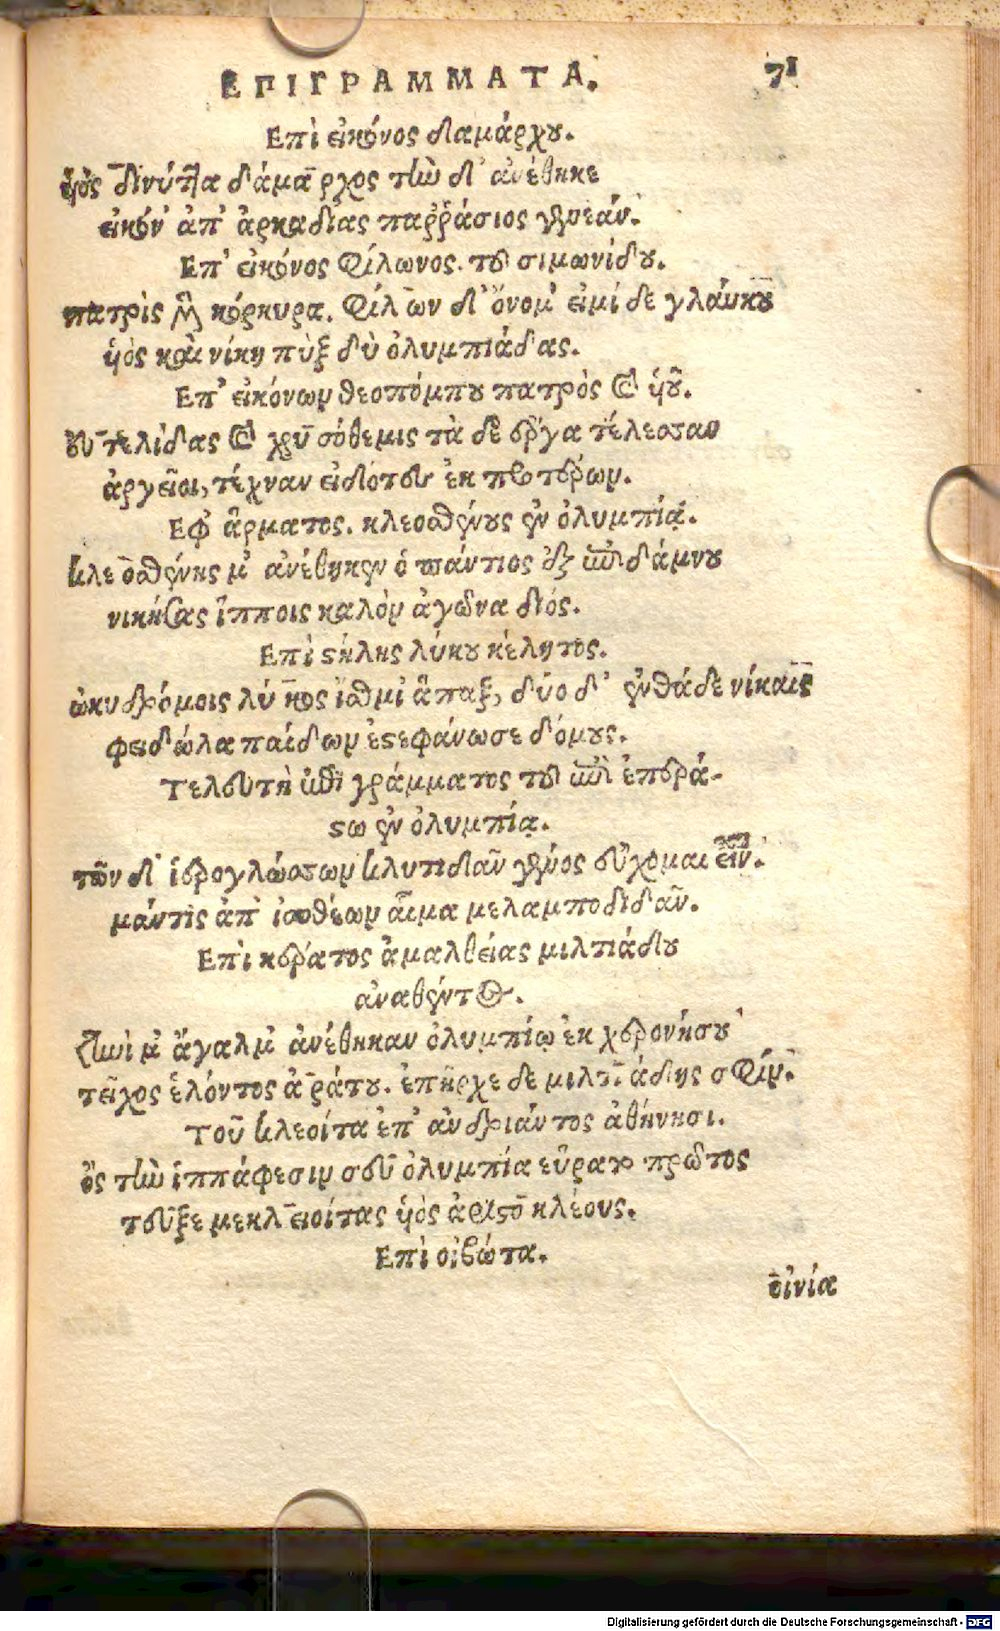 ΕΠΙΓΡΑΜΜΑΤΑ. 71
Επὶ εἰκόνος δαμάρχου.
ὑὸς δινύττα δάμαρχος τὴν δ' ἀνέθηκε
εἰκόν' ἀπ' ἀρκαδίας παῤῥάσιος γενεάν.
Επ' εἰκόνος Φίλωνος. τοῦ σιμωνίδου.
πατρὶς μὲν κόρκυρα. Φίλων δ' ὄνομ' εἰμὶ δε γλαύκου
ὑὸς καὶ νίκη πὺξ δὺ ὀλυμπιάδας.
Επ' εἰκόνων θεοπόμπου πατρὸς καὶ ὑοῦ.
Ευτελίδας καὶ χρυσόθεμις τὰ δὲ ἔργα τέλεσσαν
ἀργεῖοι, τέχναν εἰδότες ἐκ προτέρων.
Εφ' ἅρματος. κλεοσθένους ἐν ὀλυμπίᾳ.
κλεοσθένης μ' ἀνέθηκεν ὁ πάντιος ἐξ ἐπιδάμνου
νικήσας ἵπποις καλὸν ἀγῶνα διός.
Επὶ στήλης λύκου κέλητος.
ὠκυδρόμοις λύκος ἴσθμι' ἅπαξ, δύο δ' ἐνθάδε νίκαις
φειδώλα παίδων ἐστεφάνωσε δόμους.
Τελευτὴ ἐπιγράμματος τοῦ ἐπὶ ἐπεράστω
ἐν ὀλυμπίᾳ.
τῶν δ' ἱερογλώσσων κλυτιδᾶν γένος εὔχομαι εἶναι.
μάντις ἀπ' ἰσοθέων αἷμα μελαμποδιδᾶν.
Επὶ κέρατος ἀμαλθείας μιλτιάδου
ἀναθέντος.
ζηνὶ μ' ἄγαλμ' ἀνέθηκαν ὀλυμπίῳ ἐκ χερονήσου
τεῖχος ἑλόντος ἀράτου. ἐπῆρχε δε μιλτιάδης σφίν.
Τοῦ κλεοίτα ἐπ' ἀνδριάντος ἀθήνησι.
ὃς τὴν ἱππάφεσιν ὀλυμπία εὕρατο πρῶτος
τεῦξε με κλειοίτας ὑὸς ἀριστοκλέους.
Επὶ οἰβώτα.
οἰνία
Digitalisierung gefördert durch die Deutsche Forschungsgemeinschaft - DFG